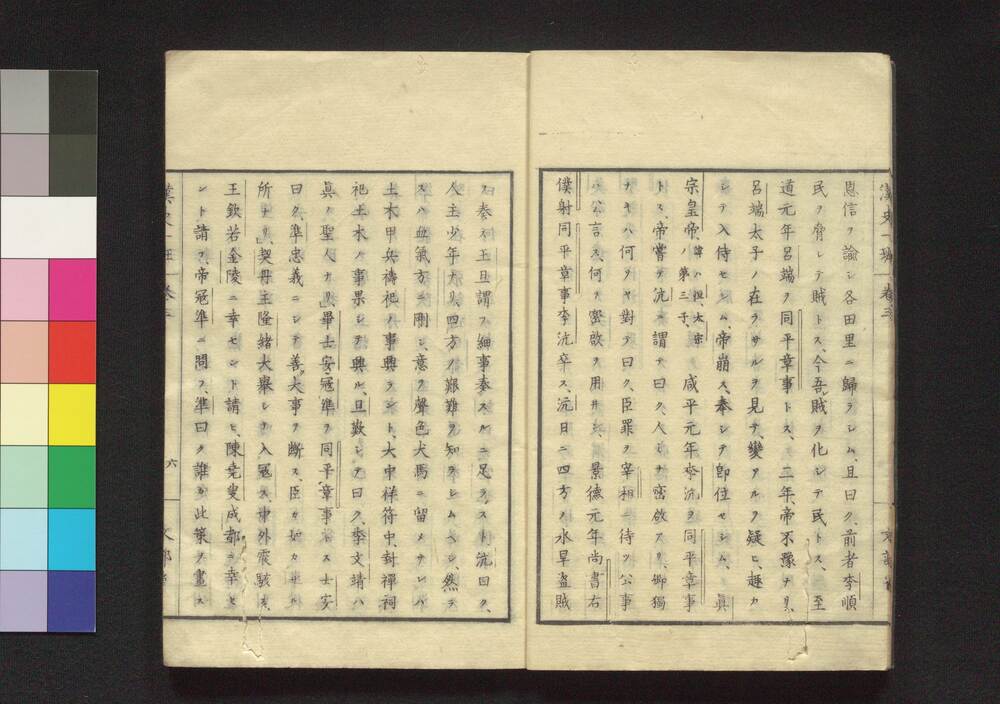 恩信ヲ諭シ各田里ニ歸ラシム、且曰ク、前者李順
民ヲ脅シテ賊トス、今吾賊ヲ化シテ民トス、至
道元年呂端ヲ同平章事トス、二年、帝不豫ナリ、
呂端太子ノ在ラサルヲ見テ、變アルヲ疑ヒ、趣カ
シテ入侍セシム、帝崩ス、奉シテ即位セシム、眞
宗皇帝、諱ハ恒、太宗ノ第三子、咸平元年李沆ヲ同平章事
トス、帝嘗テ沆ニ謂テ曰ク、人ミナ密啟アリ、卿獨
ナキハ何ソヤ、對テ曰ク、臣罪ヲ宰相ニ待ツ、公事
ハ公言ス、何ソ密啟ヲ用井ン、景德元年尚書右
僕射同平章事李沆卒ス、沆日ニ四方ノ水旱盜賊
ヲ奏ス、王旦謂フ細事奏スルニ足ラスト、沆曰ク、
人主少年ナリ、四方ノ艱難ヲ知ラシムヘシ、然ラ
スハ血氣方ニ剛シ、意ヲ聲色犬馬ニ留メサレハ
土木甲兵禱祀ノ事興ラント、大中祥符中、封禪祠
祀土木ノ事果シテ興ル、旦歎シテ曰ク、李文靖ハ
眞ノ聖人ナリ、畢士安寇準ヲ同平章事
曰ク、準忠義ニシテ善ク大事ヲ斷ス、臣カ
所ナリ、契丹主隆緒大擧シテ入寇ス、中外震駭ス、
王欽若金陵ニ幸セント請ヒ、陳堯叟成都ニ幸セ
ント請フ、帝寇準ニ問フ、準曰ク誰カ此策ヲ畫ス
六